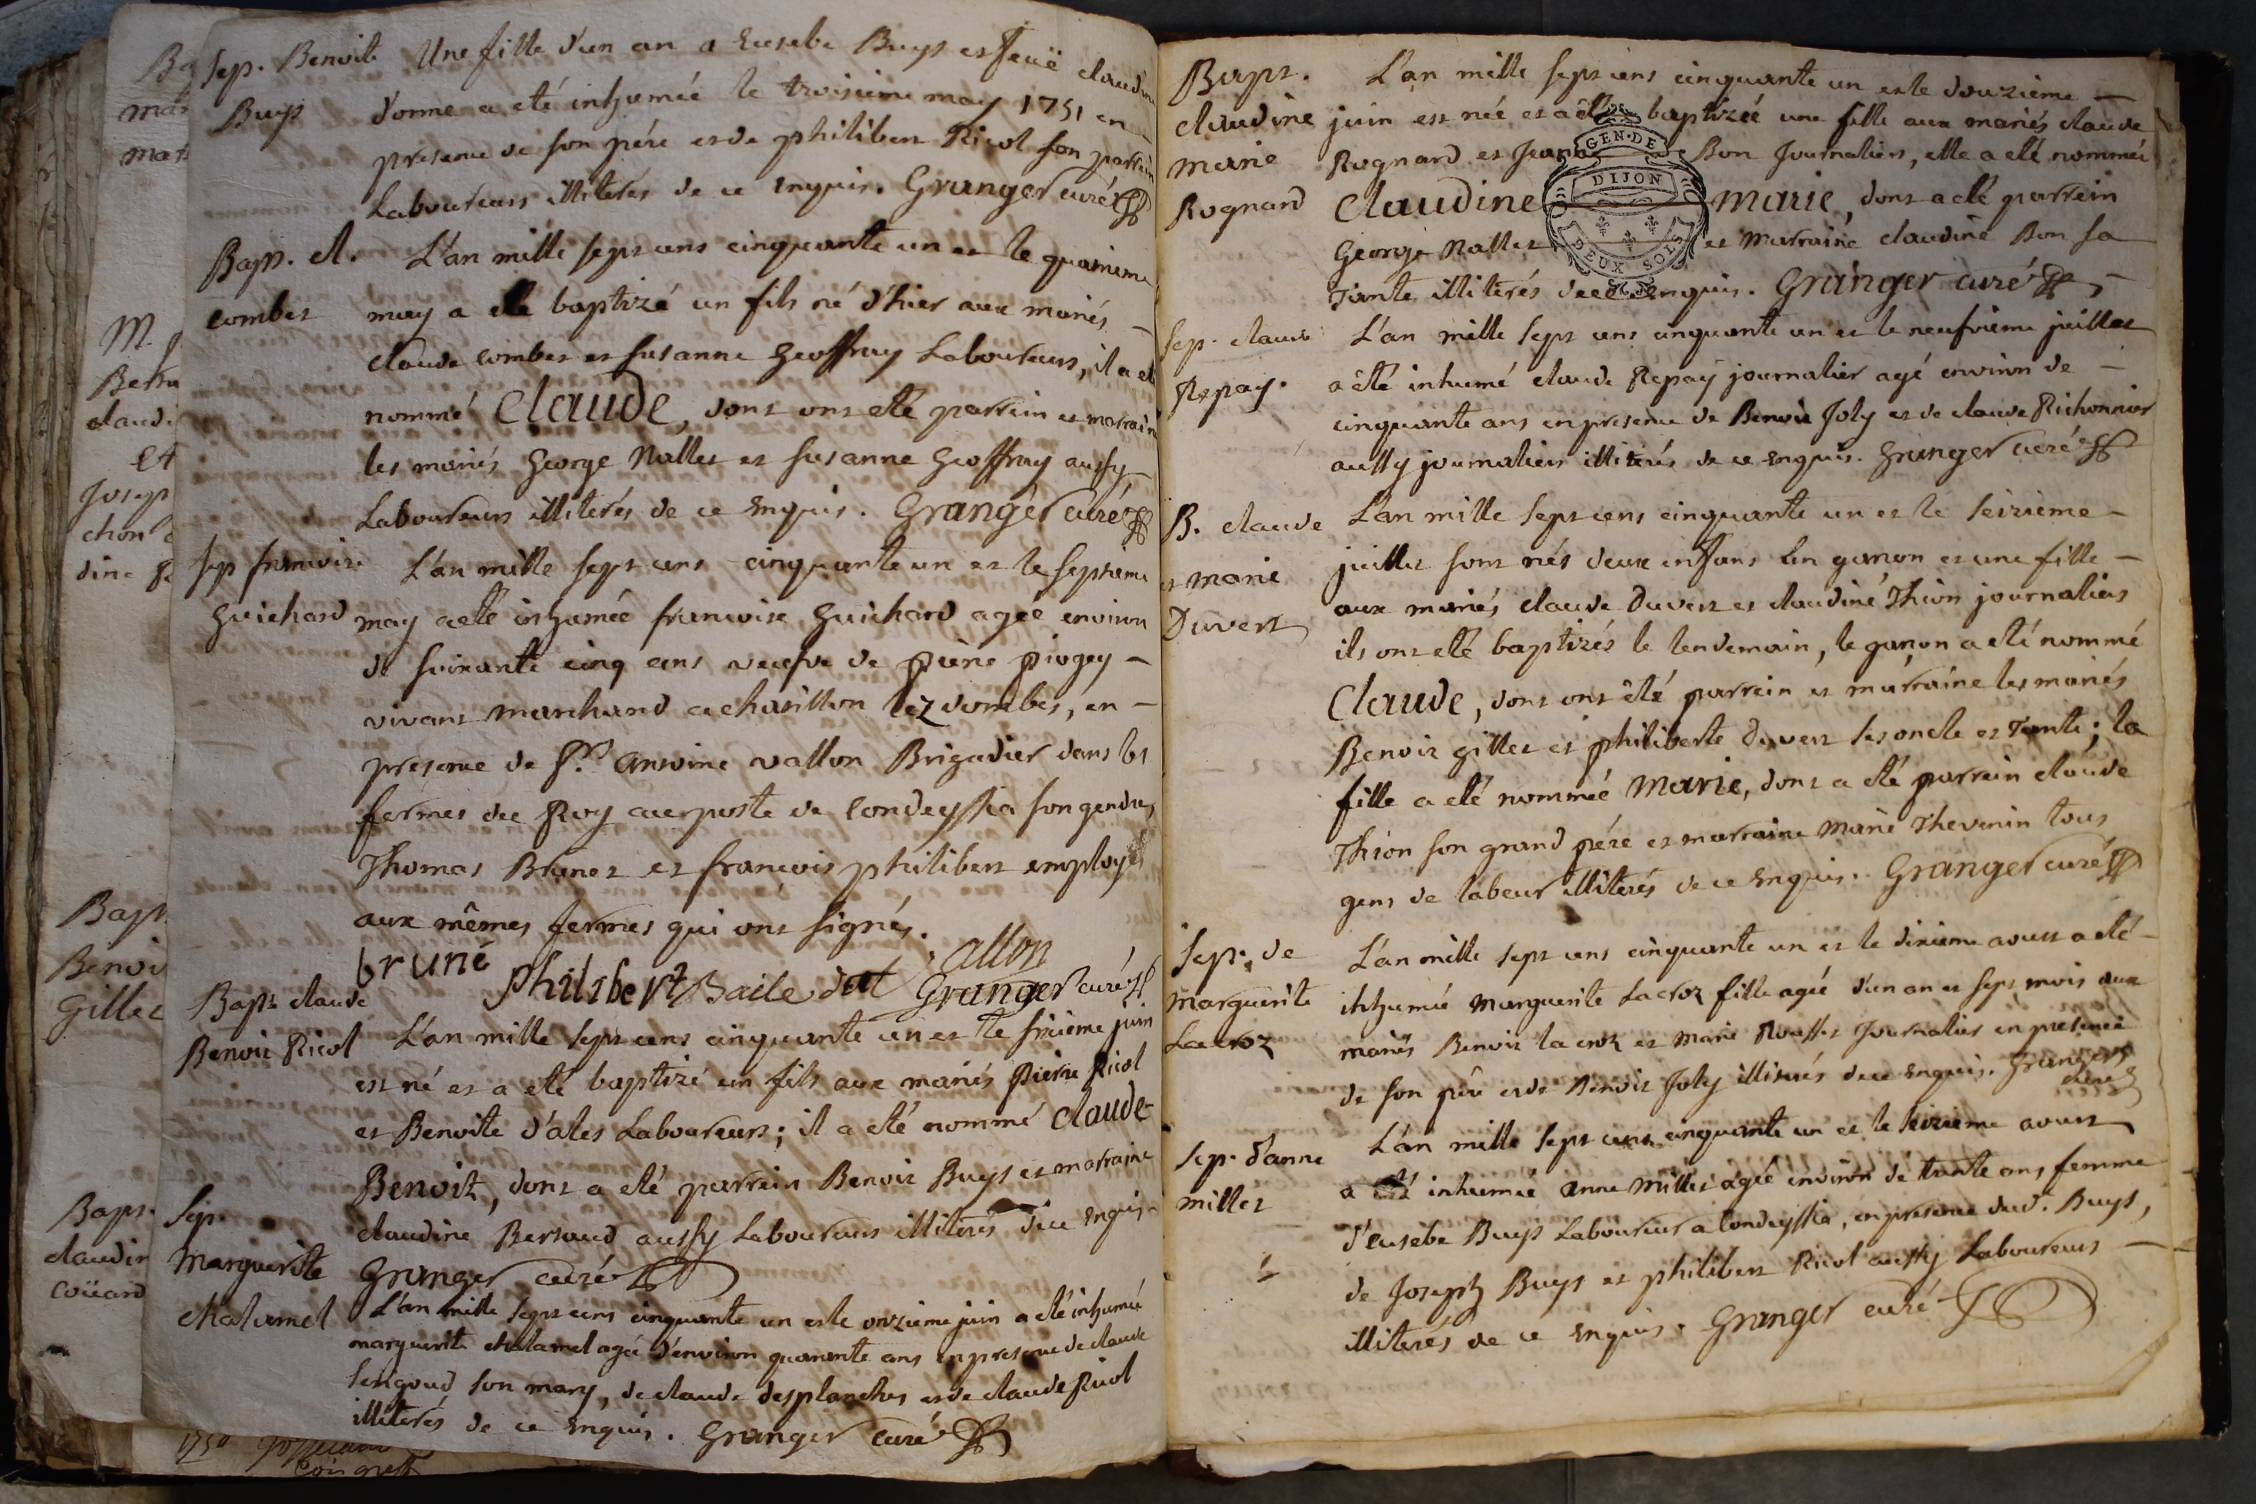 Sep. Benoite Une fille d'un an a Eusebe Buys et feuë claudine
Buys d'onne a eté inhumée le troisieme may 1751 en
presence de son pére et de philibert Ricol son parrein
Laboureurs illiterés de ce enquis. Granger curé
Bapt. cl. L'an mille sept cens cinquante un et le quatrieme
combet may a eté baptizé un fils né d'hier aux mariés
claude combet et susanne Geoffray Laboureurs, il a eté
nommé Claude, dont ont eté parrein et marraine
les mariés George Nallet et susanne Geoffray aussy
Laboureurs illiterés de ce enquis. Granger curé
Sep francoise L'an mille sept cens cinquante un et le septieme
Guichard may a eté inhumée francoise Guichard agée environ
de soixante cinq ans veufve de pierre piogey
vivant marchand a chatillon lez dombes, en
presence de Sr. antoine vallon Brigadier dans les
fermes du Roy au poste de condeyssia son gendre,
Thomas Brunet et françois philibert employés
aux mêmes fermes qui ont signés.
bruné allon
Philibert Granger curé
Bapt. claude L'an mille sept cens cinquante un et le sixieme juin
Benoit Ricol est né et a eté baptizé un fils aux mariés Pierre Ricol
et Benoite d'ales Laboureurs; il a eté nommé Claude
Benoit, dont a eté parrein Benoit Buys et marraine
claudine Bersoud aussy Laboureurs illiterés de ce enquis
Granger curé
Sep. Marguerite chalamel L'an mille sept cens cinquante un et le onzieme juin a eté inhumée
marguerite chalamel agée d'environ quarante ans en presence de claude
sengoud son mary, de claude desplanches et de claude Ricol
illiterés de ce enquis. Granger curé
Bapt. L'an mille sept cens cinquante un et le douzieme
claudine juin est née et a êté baptizée une fille aux mariés claude
marie Rognard et Jeanne Bon Journaliers, elle a eté nommée
Rognard Claudine marie, dont a eté parrein
George Nallet et marraine claudine Bon sa
Tante illiterés de ce enquis. Granger curé
GEN. DE
DIJON
DEUX SOLS
Sep. claude L'an mille sept cens cinquante un et le neufvieme juillet
Repay. a êté inhumé claude Repay journalier agé environ de
cinquante ans en presence de Benoit Joly et de claude Richonnier
aussy journaliers illiterés de ce enquis. Granger curé
B. claude L'an mille sept cens cinquante un et le seizieme
et marie juillet sont nés deux enfans un garçon et une fille
Duvert aux mariés claude Duvert et claudine Thion journaliers
ils ont eté baptizés le lendemain, le garçon a eté nommé
Claude, dont ont êté parrein et marraine les mariés
Benoit gillet et philiberte Duvert ses oncle et Tante; la
fille a eté nommée Marie, dont a eté parrein claude
Thion son grand pére et marraine marie Thevenin tous
gens de labeur illiterés de ce enquis. Granger curé
Sep. de L'an mille sept cens cinquante un et le dixieme aoust a eté
marguerite inhumée marguerite Lacroz fille agée d'un an et sept mois aux
Lacroz mariés Benoit la croz et marie Rousset Journalier en presence
de son pére et de Benoit Joly illiterés de ce enquis. Granger
curé
Sep. d'anne L'an mille sept cens cinquante un et le seizieme aoust
millet a eté inhumée anne millet agée environ de trante ans, femme
d'eusebe Buys Laboureur a Condeyssia, en presence dud. Buys,
de Joseph Buys et philibert Ricol aussy Laboureurs
illiterés de ce enquis. Granger curé
M.
claudi
et
Josep
Bapt.
Benoi
Gillet
Bapt.
claudin
coüard
1750